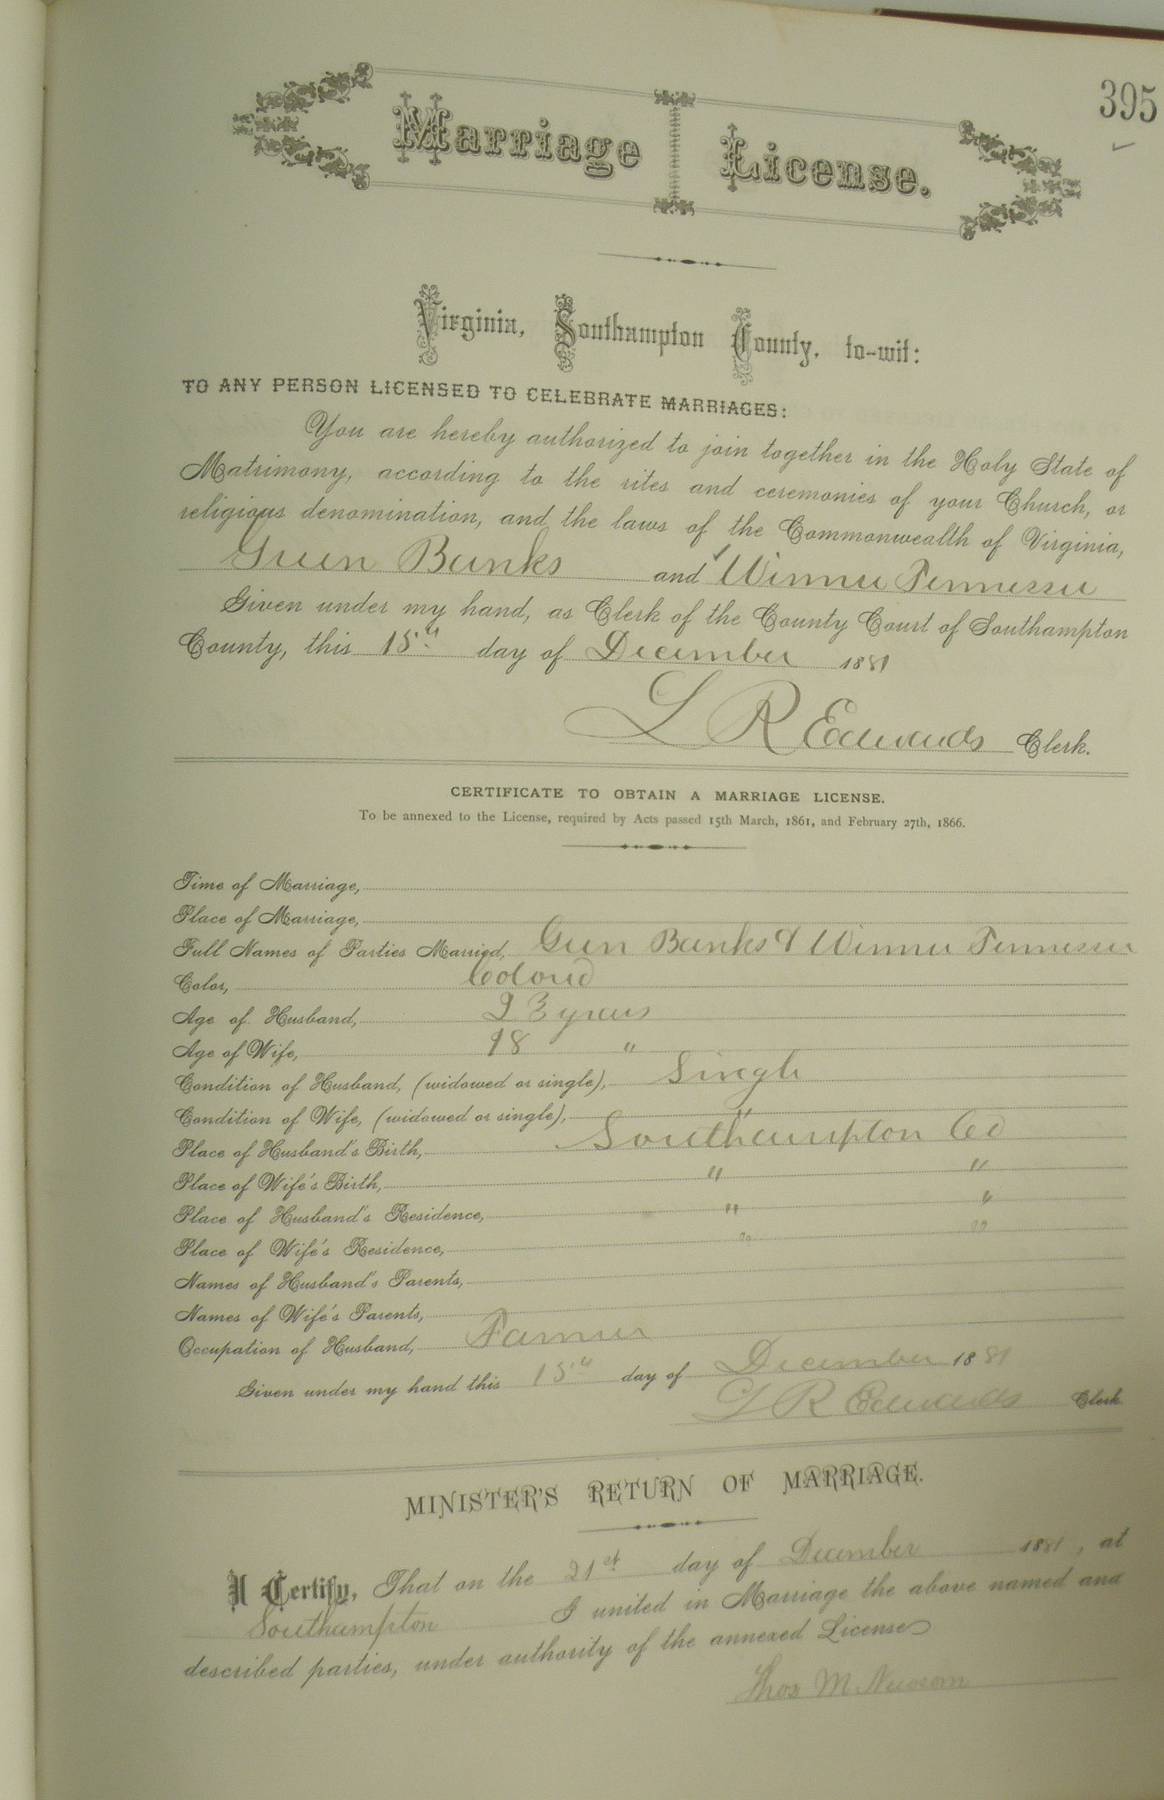 395
Marriage License.
Virginia, Southampton County, to-wit:
TO ANY PERSON LICENSED TO CELEBRATE MARRIAGES:
You are hereby authorized to join together in the Holy State of
Matrimony, according to the rites and ceremonies of your Church, or
religious denomination, and the laws of the Commonwealth of Virginia,
Green Banks and Winnie Tennessee
Given under my hand, as Clerk of the County Court of Southampton
County, this 15th day of December 1881
L R Edwards Clerk.
CERTIFICATE TO OBTAIN A MARRIAGE LICENSE.
To be annexed to the License, required by Acts passed 15th March, 1861, and February 27th, 1866.
Time of Marriage,
Place of Marriage,
Full Names of Parties Married, Green Banks & Winnie Tennessee
Color, Colored
Age of Husband, 23 years
Age of Wife, 18 "
Condition of Husband, (widowed or single), Single
Condition of Wife, (widowed or single), "
Place of Husband's Birth, Southampton Co
Place of Wife's Birth, " "
Place of Husband's Residence, " "
Place of Wife's Residence, " "
Names of Husband's Parents,
Names of Wife's Parents,
Occupation of Husband, Farmer
Given under my hand this 15th day of December 1881
L R Edwards Clerk.
MINISTER'S RETURN OF MARRIAGE.
I Certify, That on the 21st day of December 1881, at
Southampton I united in Marriage the above named and
described parties, under authority of the annexed License
Thos M Newsom